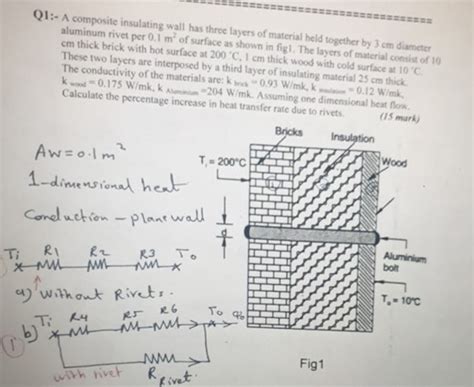 Q1:- A composite insulating wall has three layers of material held together by 3 cm diameter
aluminum rivet per 0.1 m² of surface as shown in fig1. The layers of material consist of 10
cm thick brick with hot surface at 200 °C, 1 cm thick wood with cold surface at 10 °C.
These two layers are interposed by a third layer of insulating material 25 cm thick.
The conductivity of the materials are: k brick = 0.93 W/mk, k insulation = 0.12 W/mk,
k wood = 0.175 W/mk, k Aluminium =204 W/mk. Assuming one dimensional heat flow,
Calculate the percentage increase in heat transfer rate due to rivets.
(15 mark)
Aw=0.1m²
1-dimensional heat
Conduction - plane wall
Ti R1 R2 R3 To
a) Without Rivets.
b) Ti R4 R5 R6 To
with rivet R Rivet.
Bricks
Insulation
Wood
Ti = 200°C
d
Aluminium
bolt
To = 10°C
Fig1